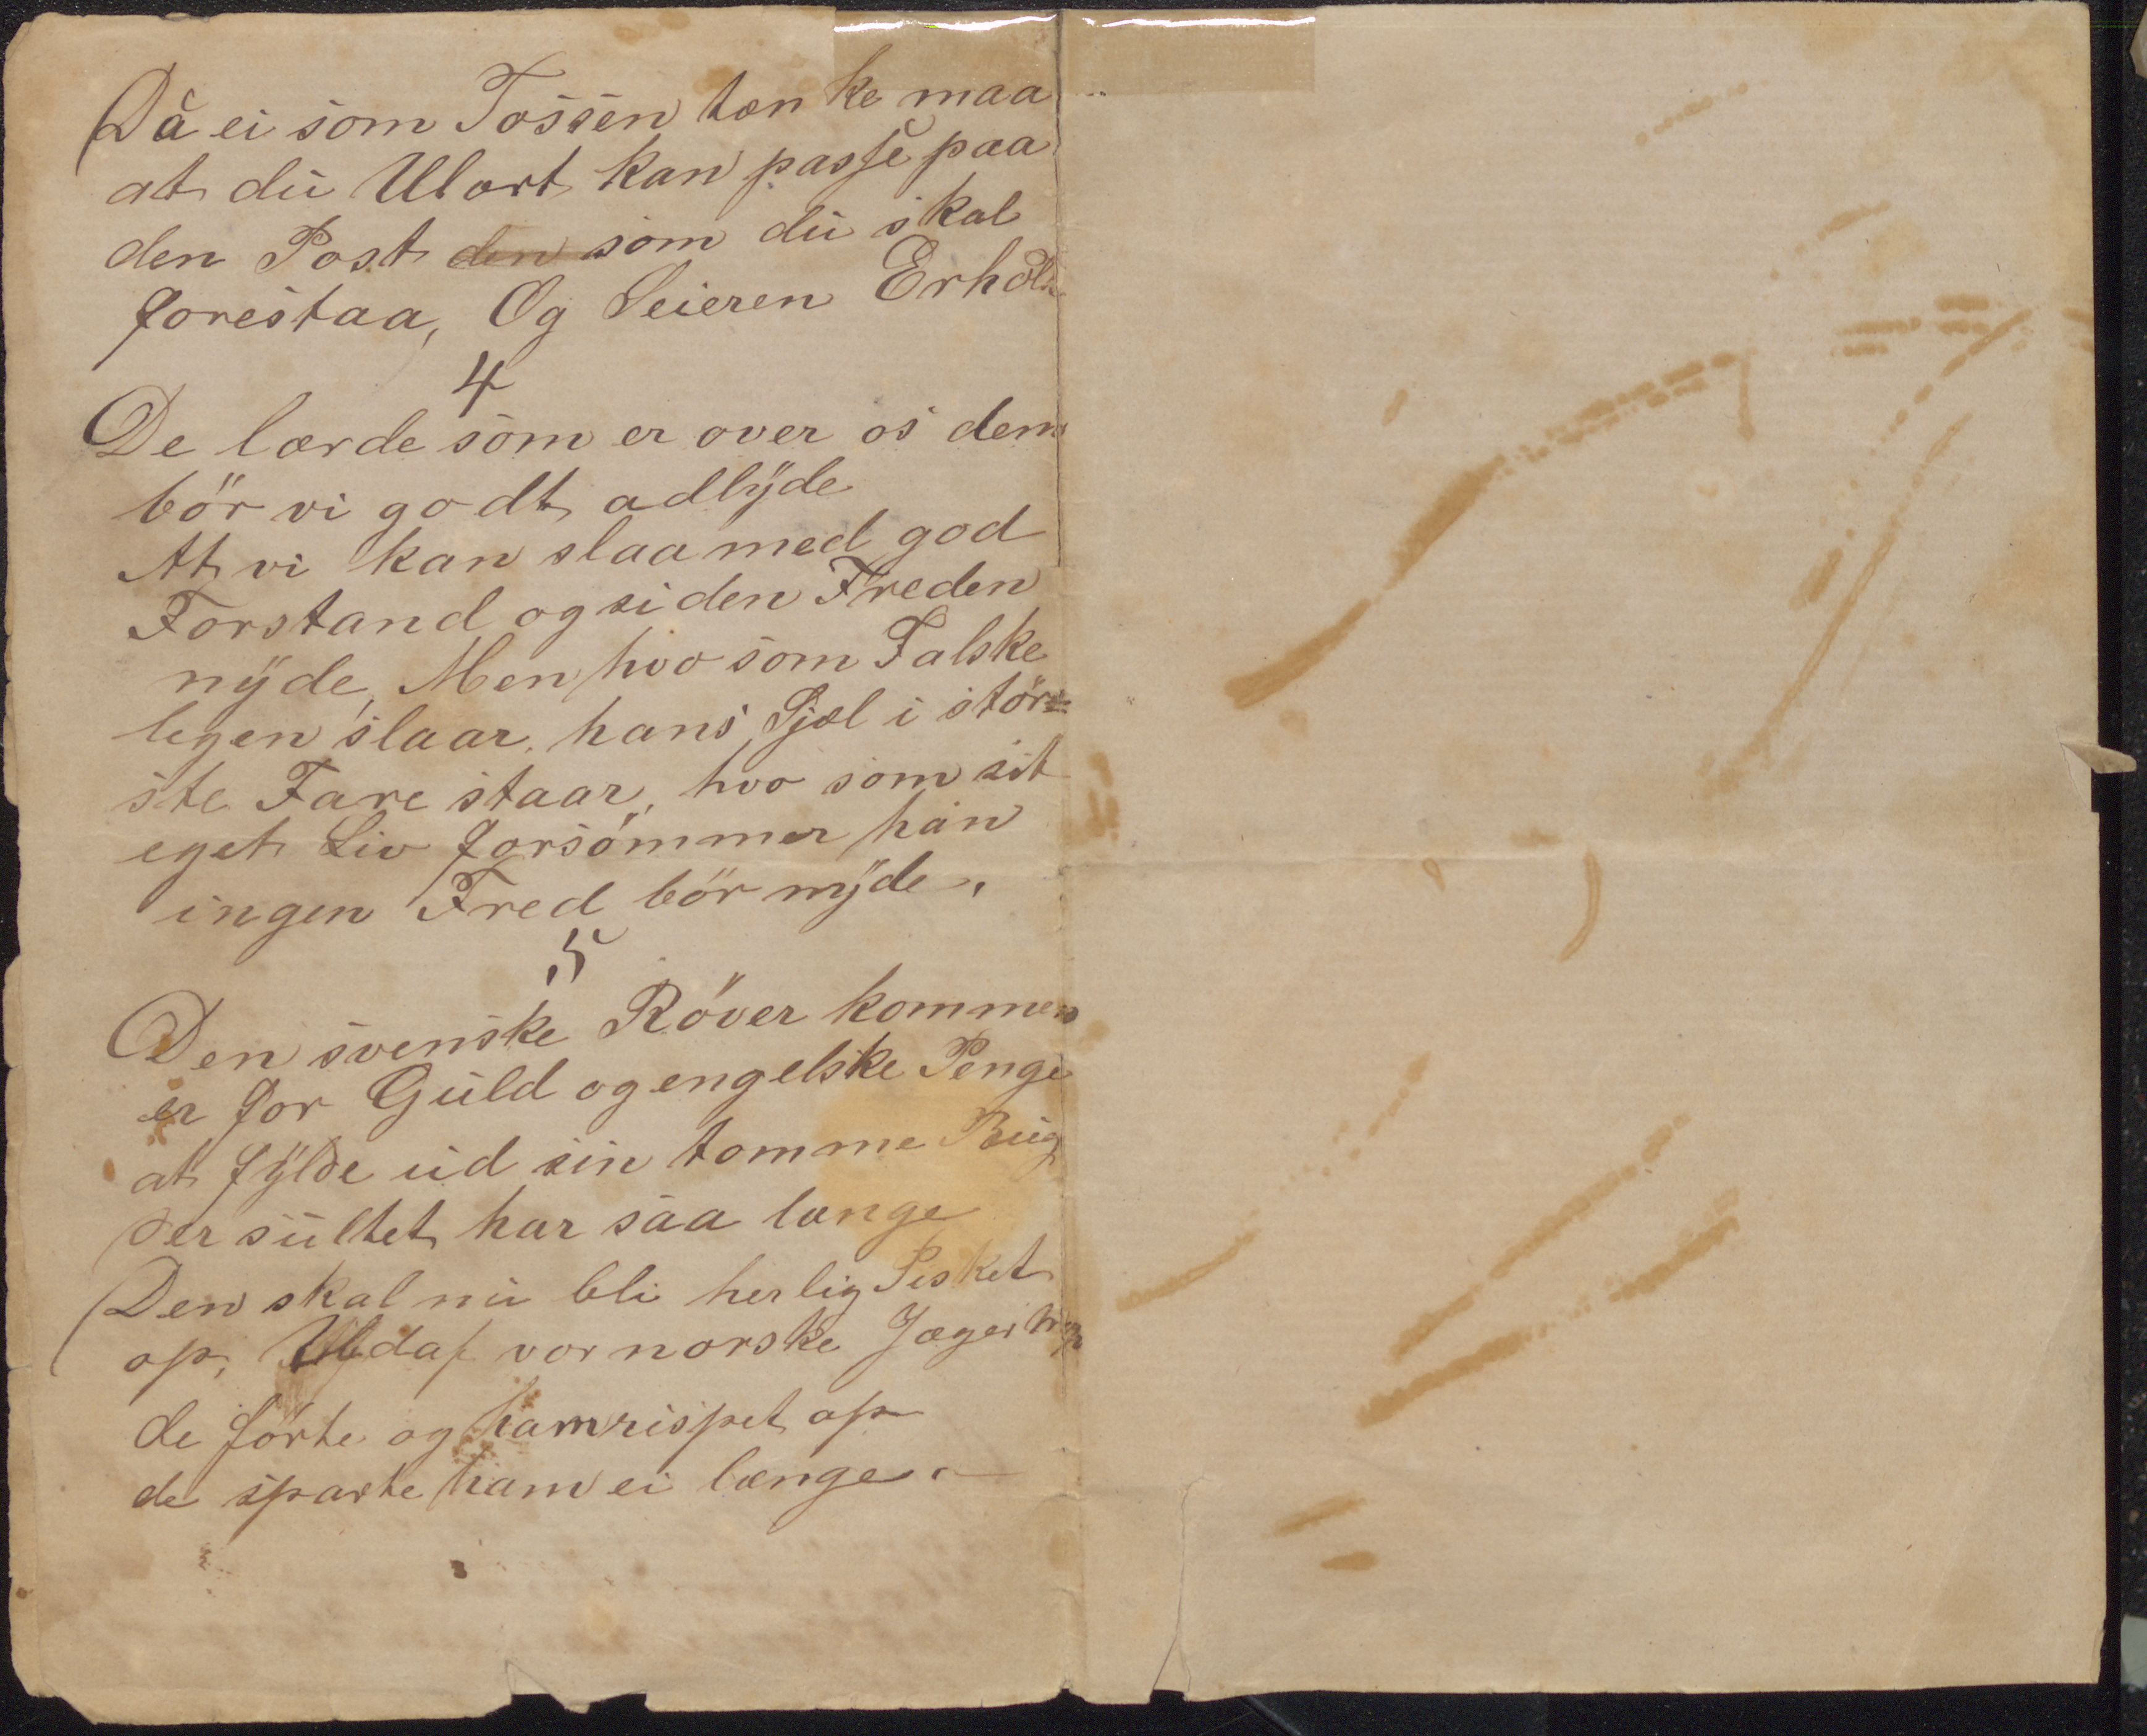 Da ei som Tossen tænke maa
at du Ulært kan passe paa
den Post den som du skal
forestaa, Og Seieren Erhold
4
De lærde som er over os dem
bör vi godt adlÿde
At vi kan slaa med god
Forstand og siden Freden
nÿde, Men hvo som Falske
legen slaar, hans Sjæl i stör=
ste Fare staar, hvo som sit
eget Liv forsömmer han
ingen Fred bör nÿde.
5
Den svenske Röver kommen
er for Guld og engelske Penge
at fÿlde ud sin tomme Bug
der sultet har saa længe
Den skal nu bli herlig Pisket
op, Udaf vor norske Jæger
de förte og ham rispet op
de sparte ham ei længe.